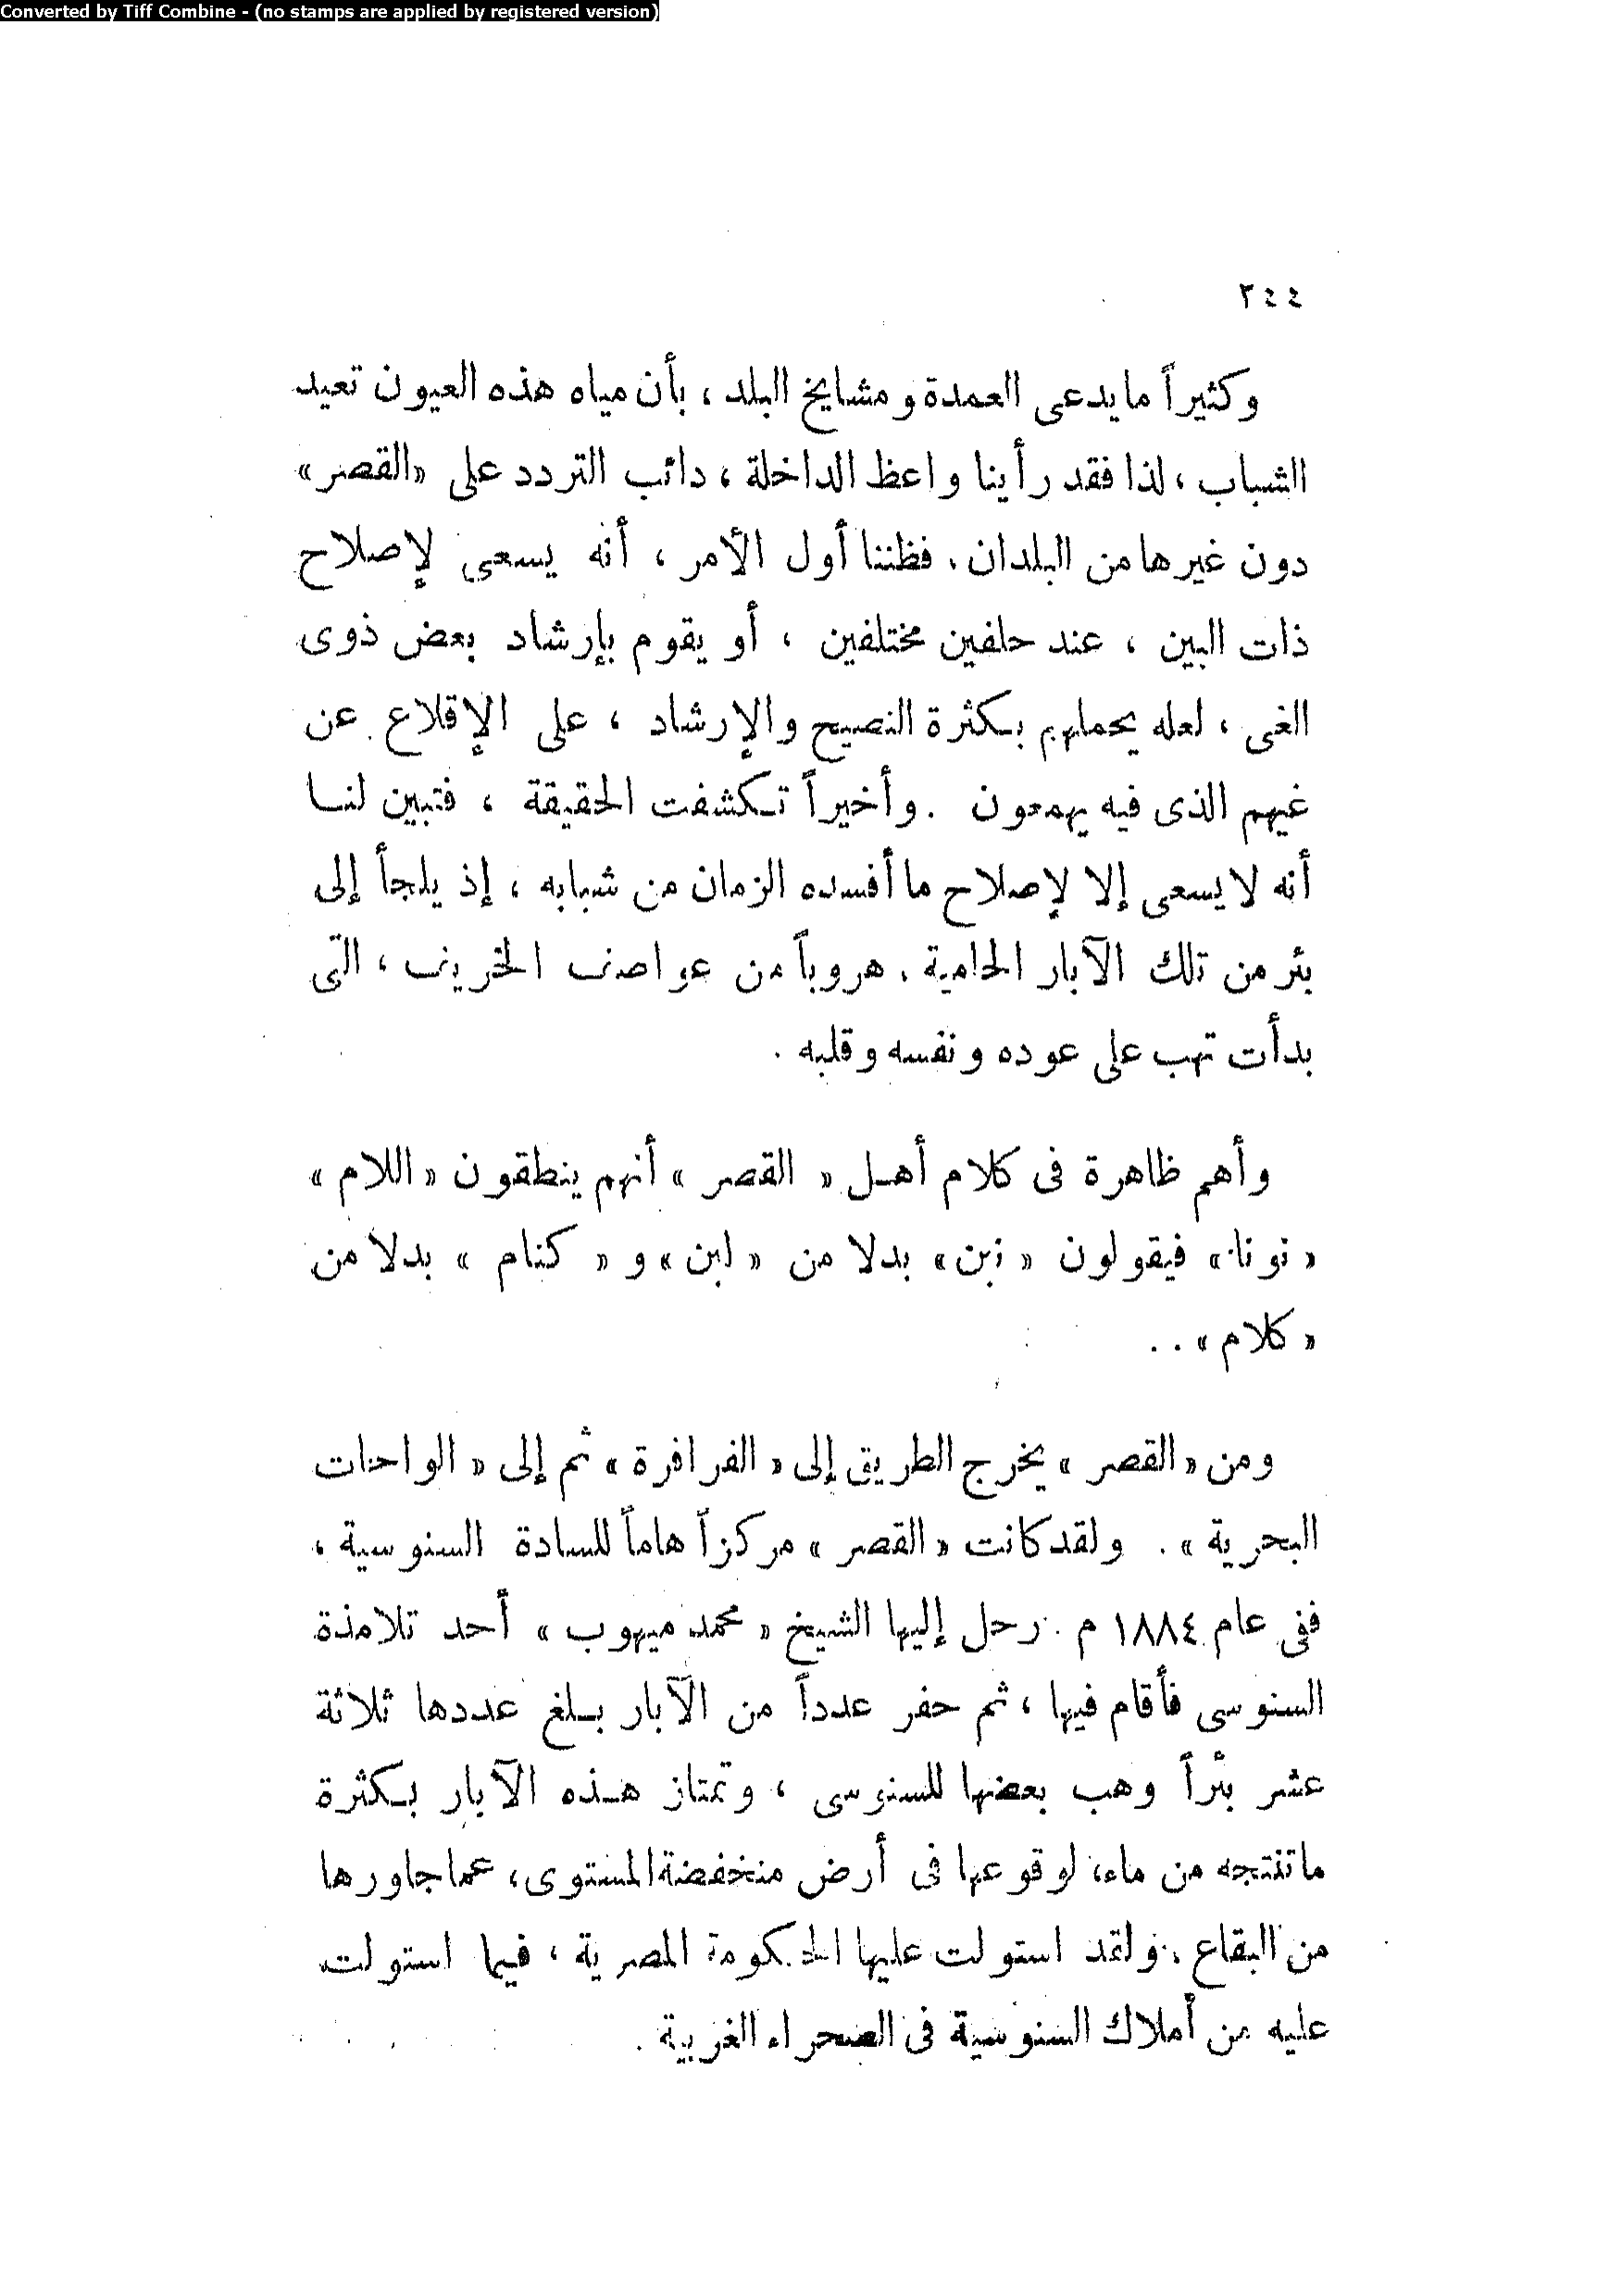 Converted by Tiff Combine - (no stamps are applied by registered version)
٢٤٤
وكثيراً ما يدعى العمدة ومشايخ البلد ، بأن مياه هذه العيون تعيد
الشباب ، لذا فقد رأينا واعظ الداخلة ، دائب التردد على «القصر»
دون غيرها من البلدان . فظننا أول الأمر ، أنه يسعى لإصلاح
ذات البين ، عند حلفين مختلفين ، أو يقوم بإرشاد بعض ذوى
الغى ، لعله يحملهم بكثرة النصيح والإرشاد ، على الإقلاع عن
غيهم الذى فيه يهمعون . وأخيراً تكشفت الحقيقة ، فتبين لنا
أنه لا يسعى إلا لإصلاح ما أفسده الزمان من شبابه ، إذ يلجأ إلى
بئر من تلك الآبار الحامية . هروباً من عواصف الخريف ، التى
بدأت تهب على عوده ونفسه وقلبه .
وأهم ظاهرة فى كلام أهل « القصر » أنهم ينطقون « اللام »
« نونا » فيقولون « نبن » بدلا من « لبن » و « كنام » بدلا من
« كلام » . .
ومن « القصر » يخرج الطريق إلى « الفرافرة » ثم إلى « الواحات
البحرية » . ولقد كانت « القصر » مركزاً هاماً للسادة السنوسية ،
ففى عام ١٨٨٤ م . رحل إليها الشيخ « محمد ميهوب » أحد تلامذة
السنوسى فأقام فيها ، ثم حفر عدداً من الآبار بلغ عددها ثلاثة
عشر بئراً وهب بعضها للسنوسى ، وتمتاز هذه الآبار بكثرة
ما تنتجه من ماء، لوقوعها فى أرض منخفضة المستوى ، عما جاورها
من البقاع . ولقد استولت عليها الحكومة المصرية ، فيما استولت
عليه من أملاك السنوسية فى الصحراء الغربية .